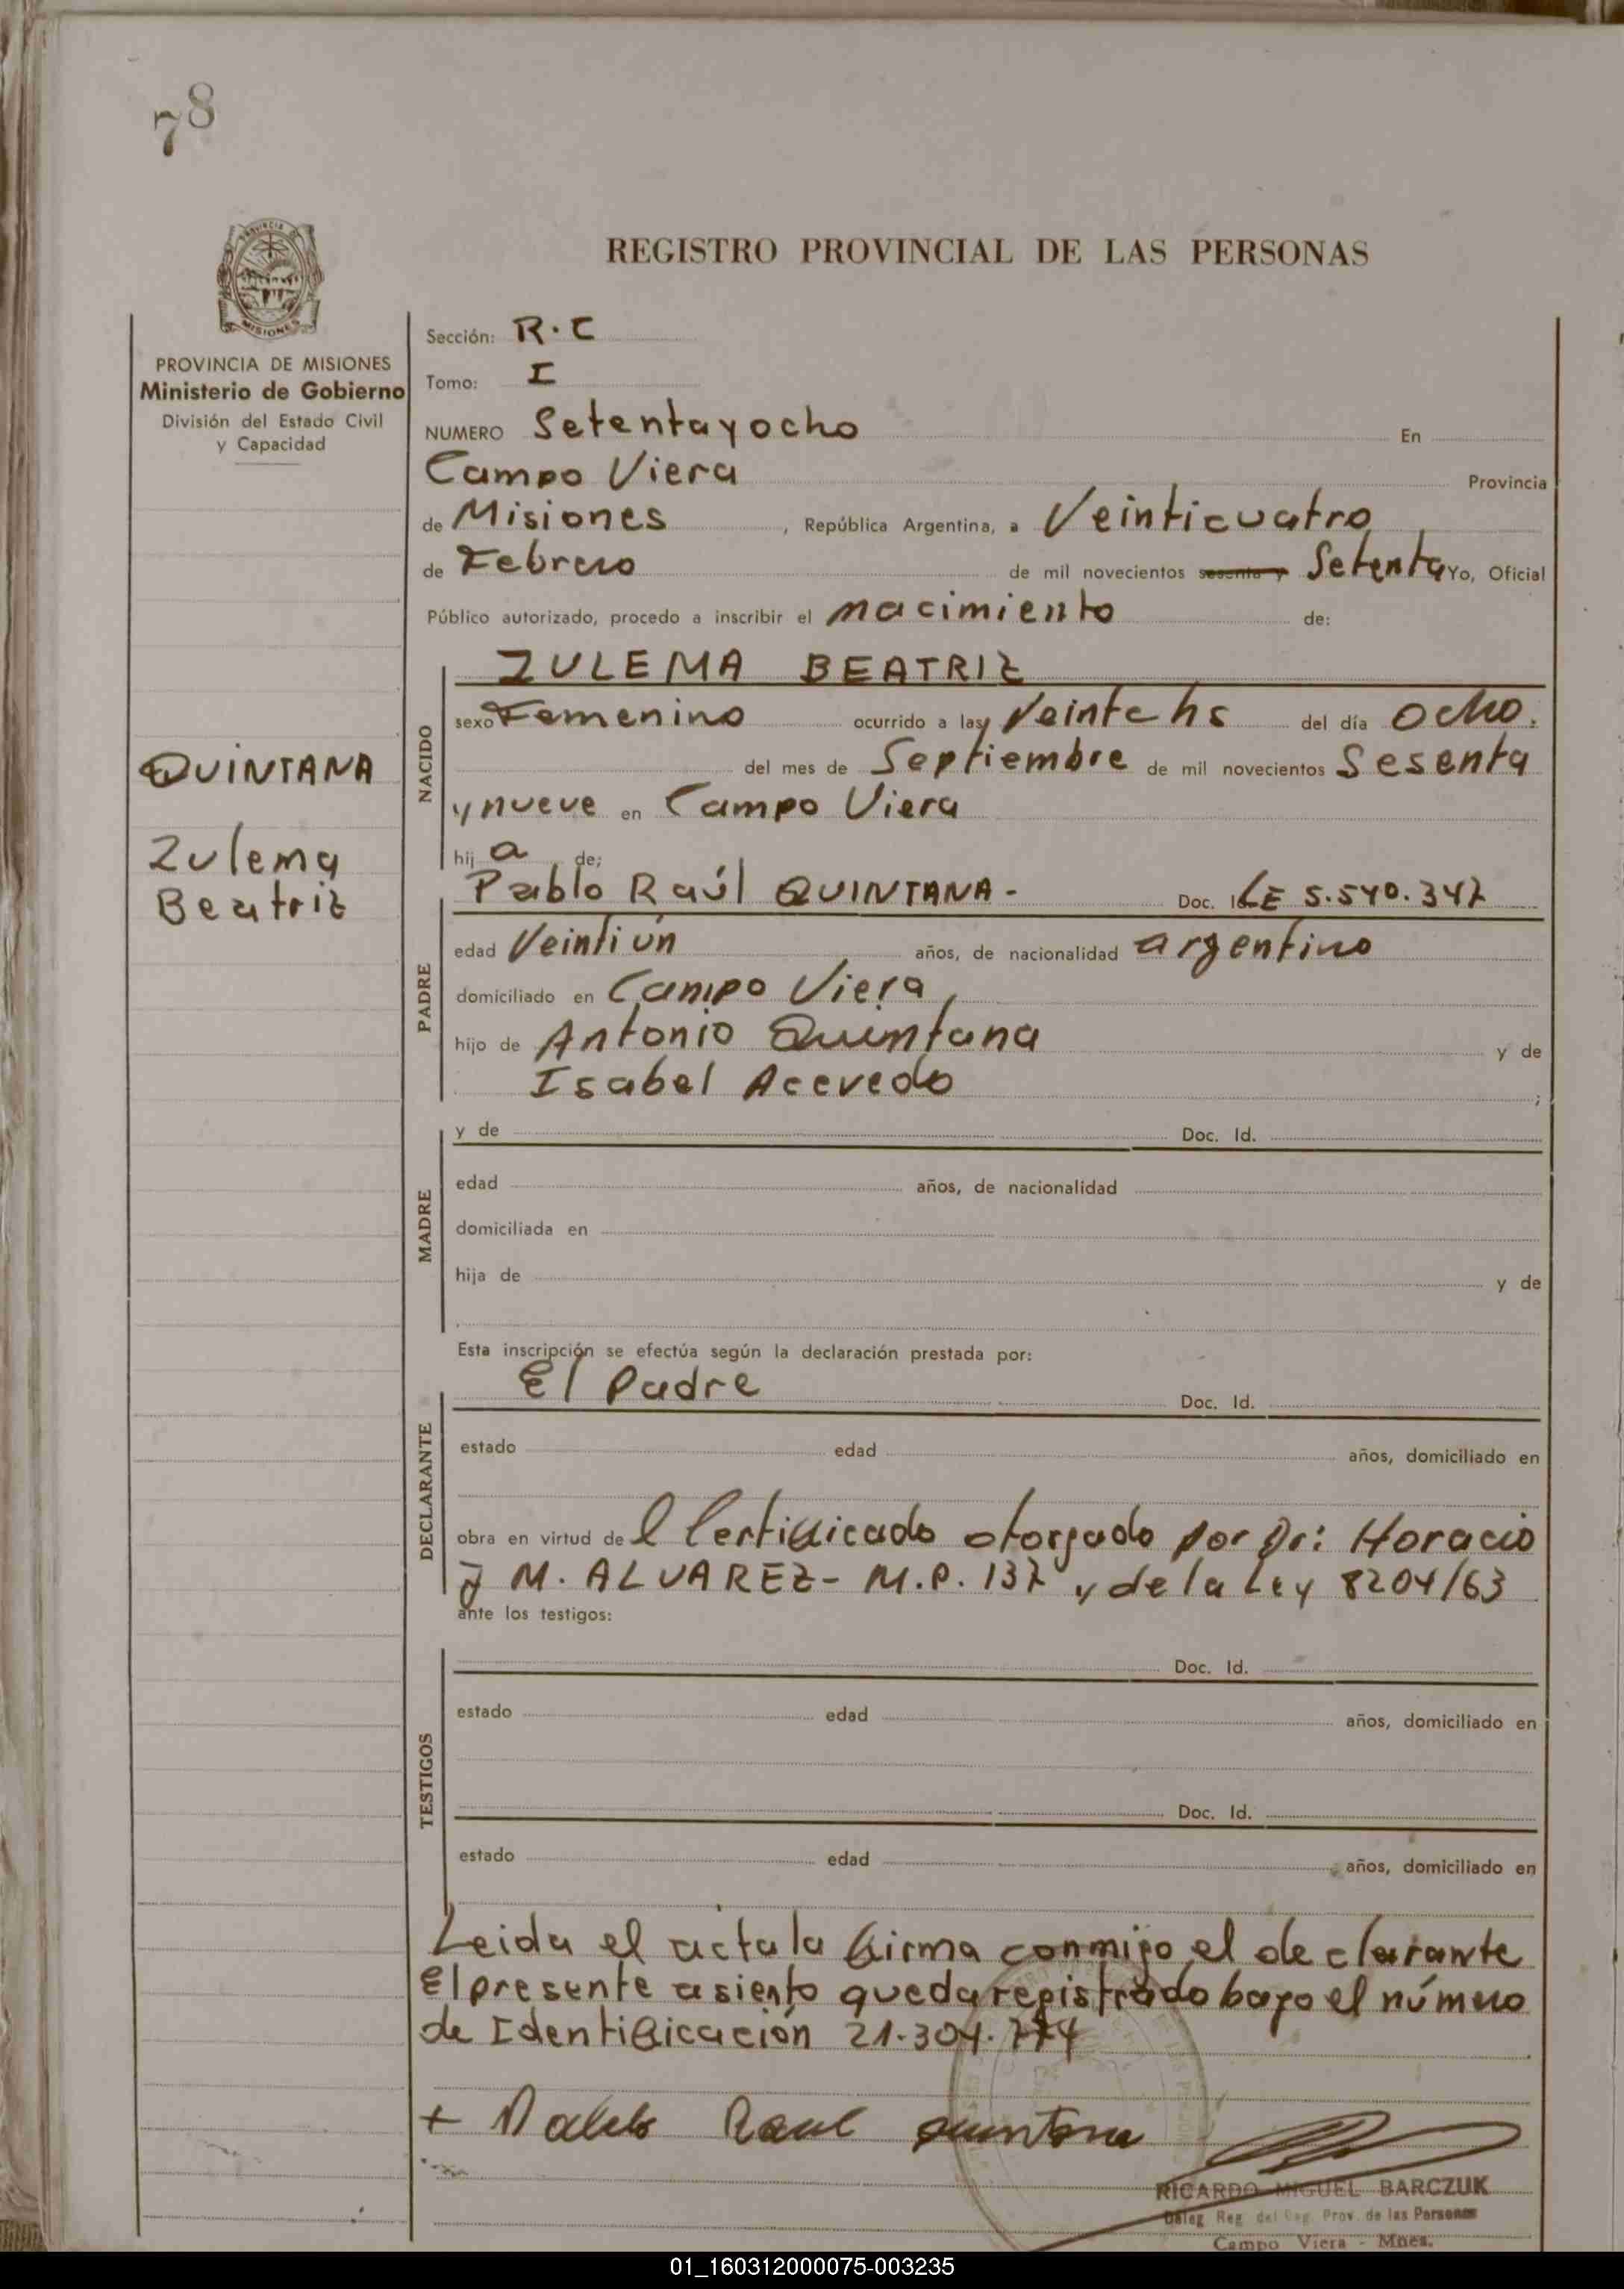 78
PROVINCIA DE
MISIONES
PROVINCIA DE MISIONES
Ministerio de Gobierno
División del Estado Civil
y Capacidad
QUINTANA
Zulema
Beatriz
REGISTRO PROVINCIAL DE LAS PERSONAS
Sección: R.C
Tomo: I
NUMERO Setenta y ocho En
Campo Viera Provincia
de Misiones, República Argentina, a Veinticuatro
de Febrero de mil novecientos sesenta y Setenta Yo, Oficial
Público autorizado, procedo a inscribir el nacimiento de:
ZULEMA BEATRIZ
NACIDO
sexo Femenino ocurrido a las Veinte hs del día Ocho.
del mes de Septiembre de mil novecientos Sesenta
y nueve en Campo Viera
hij a de;
Pablo Raúl QUINTANA - Doc. Id. LE 5.540.347
PADRE
edad Veintiún años, de nacionalidad argentino
domiciliado en Campo Viera,
hijo de Antonio Quintana y de
Isabel Acevedo ;
MADRE
y de Doc. Id.
edad años, de nacionalidad
domiciliada en
hija de y de
Esta inscripción se efectúa según la declaración prestada por:
El Padre Doc. Id.
DECLARANTE
estado edad años, domiciliado en
obra en virtud de l Certificado otorgado por Dr: Horacio
J M. ALVAREZ - M.P. 137 y de la Ley 8204/63
ante los testigos:
TESTIGOS
Doc. Id.
estado edad años, domiciliado en
Doc. Id.
estado edad años, domiciliado en
Leida el acta la firma conmigo el declarante
El presente asiento queda registrado bajo el número
de Identificación 21.304.774
+ Pablo Raul Quintana
RICARDO MIGUEL BARCZUK
Deleg. Reg. del Reg. Prov. de las Personas
Campo Viera - Mnes.
01_160312000075-003235